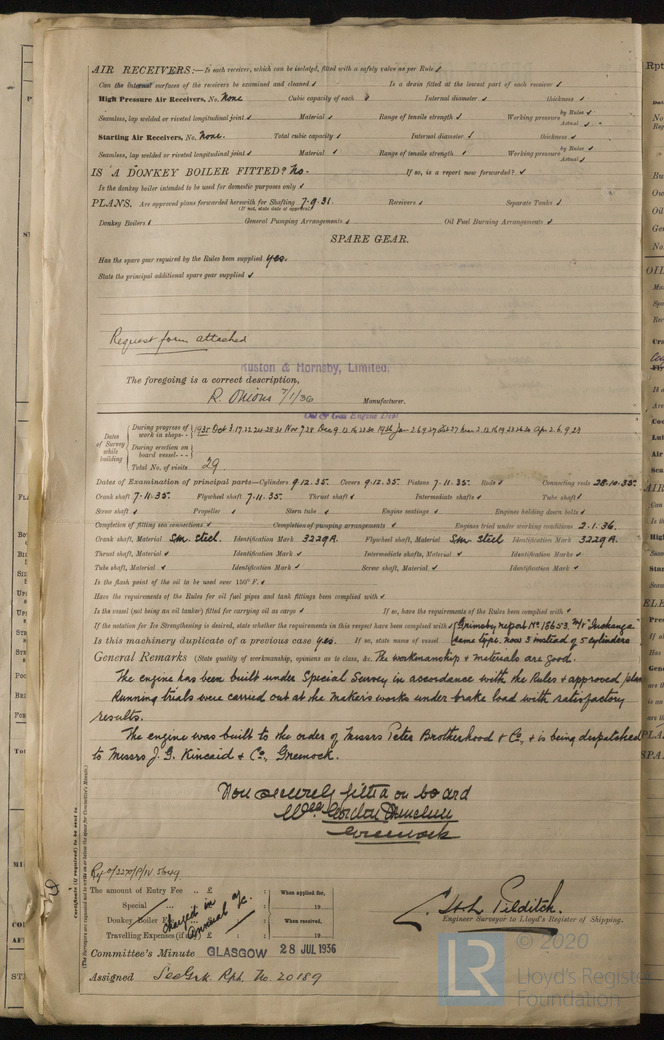 AIR RECEIVERS:—Is each receiver, which can be isolated, fitted with a safety valve as per Rule ✓
Can the internal surfaces of the receivers be examined and cleaned ✓ Is a drain fitted at the lowest part of each receiver ✓
High Pressure Air Receivers, No. None Cubic capacity of each Internal diameter ✓ thickness ✓
Seamless, lap welded or riveted longitudinal joint ✓ Material ✓ Range of tensile strength ✓ Working pressure by Rules ✓ Actual
Starting Air Receivers, No. None. Total cubic capacity ✓ Internal diameter ✓ thickness ✓
Seamless, lap welded or riveted longitudinal joint ✓ Material ✓ Range of tensile strength ✓ Working pressure by Rules ✓ Actual ✓
IS A DONKEY BOILER FITTED? No. If so, is a report now forwarded? ✓
Is the donkey boiler intended to be used for domestic purposes only ✓
PLANS. Are approved plans forwarded herewith for Shafting 7.9.31. Receivers ✓ Separate Tanks ✓
(If not, state date of approval)
Donkey Boilers General Pumping Arrangements ✓ Oil Fuel Burning Arrangements ✓
SPARE GEAR.
Has the spare gear required by the Rules been supplied yes.
State the principal additional spare gear supplied ✓
Request form attached
Ruston & Hornsby, Limited.
The foregoing is a correct description,
R. Onions 7/1/36 Manufacturer.
Oil & Gas Engine Dept
Dates of Survey while building
During progress of work in shops - - 1935 Oct 3.17.22.24.28.31 Nov 7.28 Dec 9.12.16
During erection on board vessel - - -
Total No. of visits 29.
Dates of Examination of principal parts—Cylinders 9.12.35. Covers 9.12.35. Pistons 7.11.35. Rods ✓ Connecting rods 28.10.35.
Crank shaft 7.11.35. Flywheel shaft 7.11.35. Thrust shaft ✓ Intermediate shafts ✓ Tube shaft ✓
Screw shaft ✓ Propeller ✓ Stern tube ✓ Engine seatings ✓ Engines holding down bolts ✓
Completion of fitting sea connections ✓ Completion of pumping arrangements ✓ Engines tried under working conditions 2.1.36.
Crank shaft, Material S.M. steel. Identification Mark 3229A. Flywheel shaft, Material S.M. steel Identification Mark 3229A.
Thrust shaft, Material ✓ Identification Mark ✓ Intermediate shafts, Material ✓ Identification Marks ✓
Tube shaft, Material ✓ Identification Mark ✓ Screw shaft, Material ✓ Identification Mark ✓
Is the flash point of the oil to be used over 150° F. ✓
Have the requirements of the Rules for oil fuel pipes and tank fittings been complied with ✓
Is the vessel (not being an oil tanker) fitted for carrying oil as cargo ✓ If so, have the requirements of the Rules been complied with ✓
If the notation for Ice Strengthening is desired, state whether the requirements in this respect have been complied with ✓ Grimsby report No 15653. M/V
Is this machinery duplicate of a previous case yes. If so, state name of vessel same type. now 3 instead of 5 cylinders
General Remarks (State quality of workmanship, opinions as to class, &c. The workmanship & materials are good.
The engine has been built under Special Survey in accordance with the Rules & approved plans
Running trials were carried out at the makers works under brake load with satisfactory
results.
The engine was built to the order of Messrs Peter Brotherhood & Co., & is being despatched
to Messrs J. G. Kincaid & Co, Greenock.
Now securely fitted on board
Greenock
The amount of Entry Fee .. £ : : When applied for,
Special .. £ : : 19
Donkey Boiler Fee .. £ : : When received,
Travelling Expenses (if any) £ : : 19
Charged in Annual a/c.
Pilditch.
Engineer Surveyor to Lloyd's Register of Shipping.
Committee's Minute GLASGOW 28 JUL 1936
Assigned See Grk. Rpt. No. 20189
© 2020
Lloyd's Register
Foundation
LR